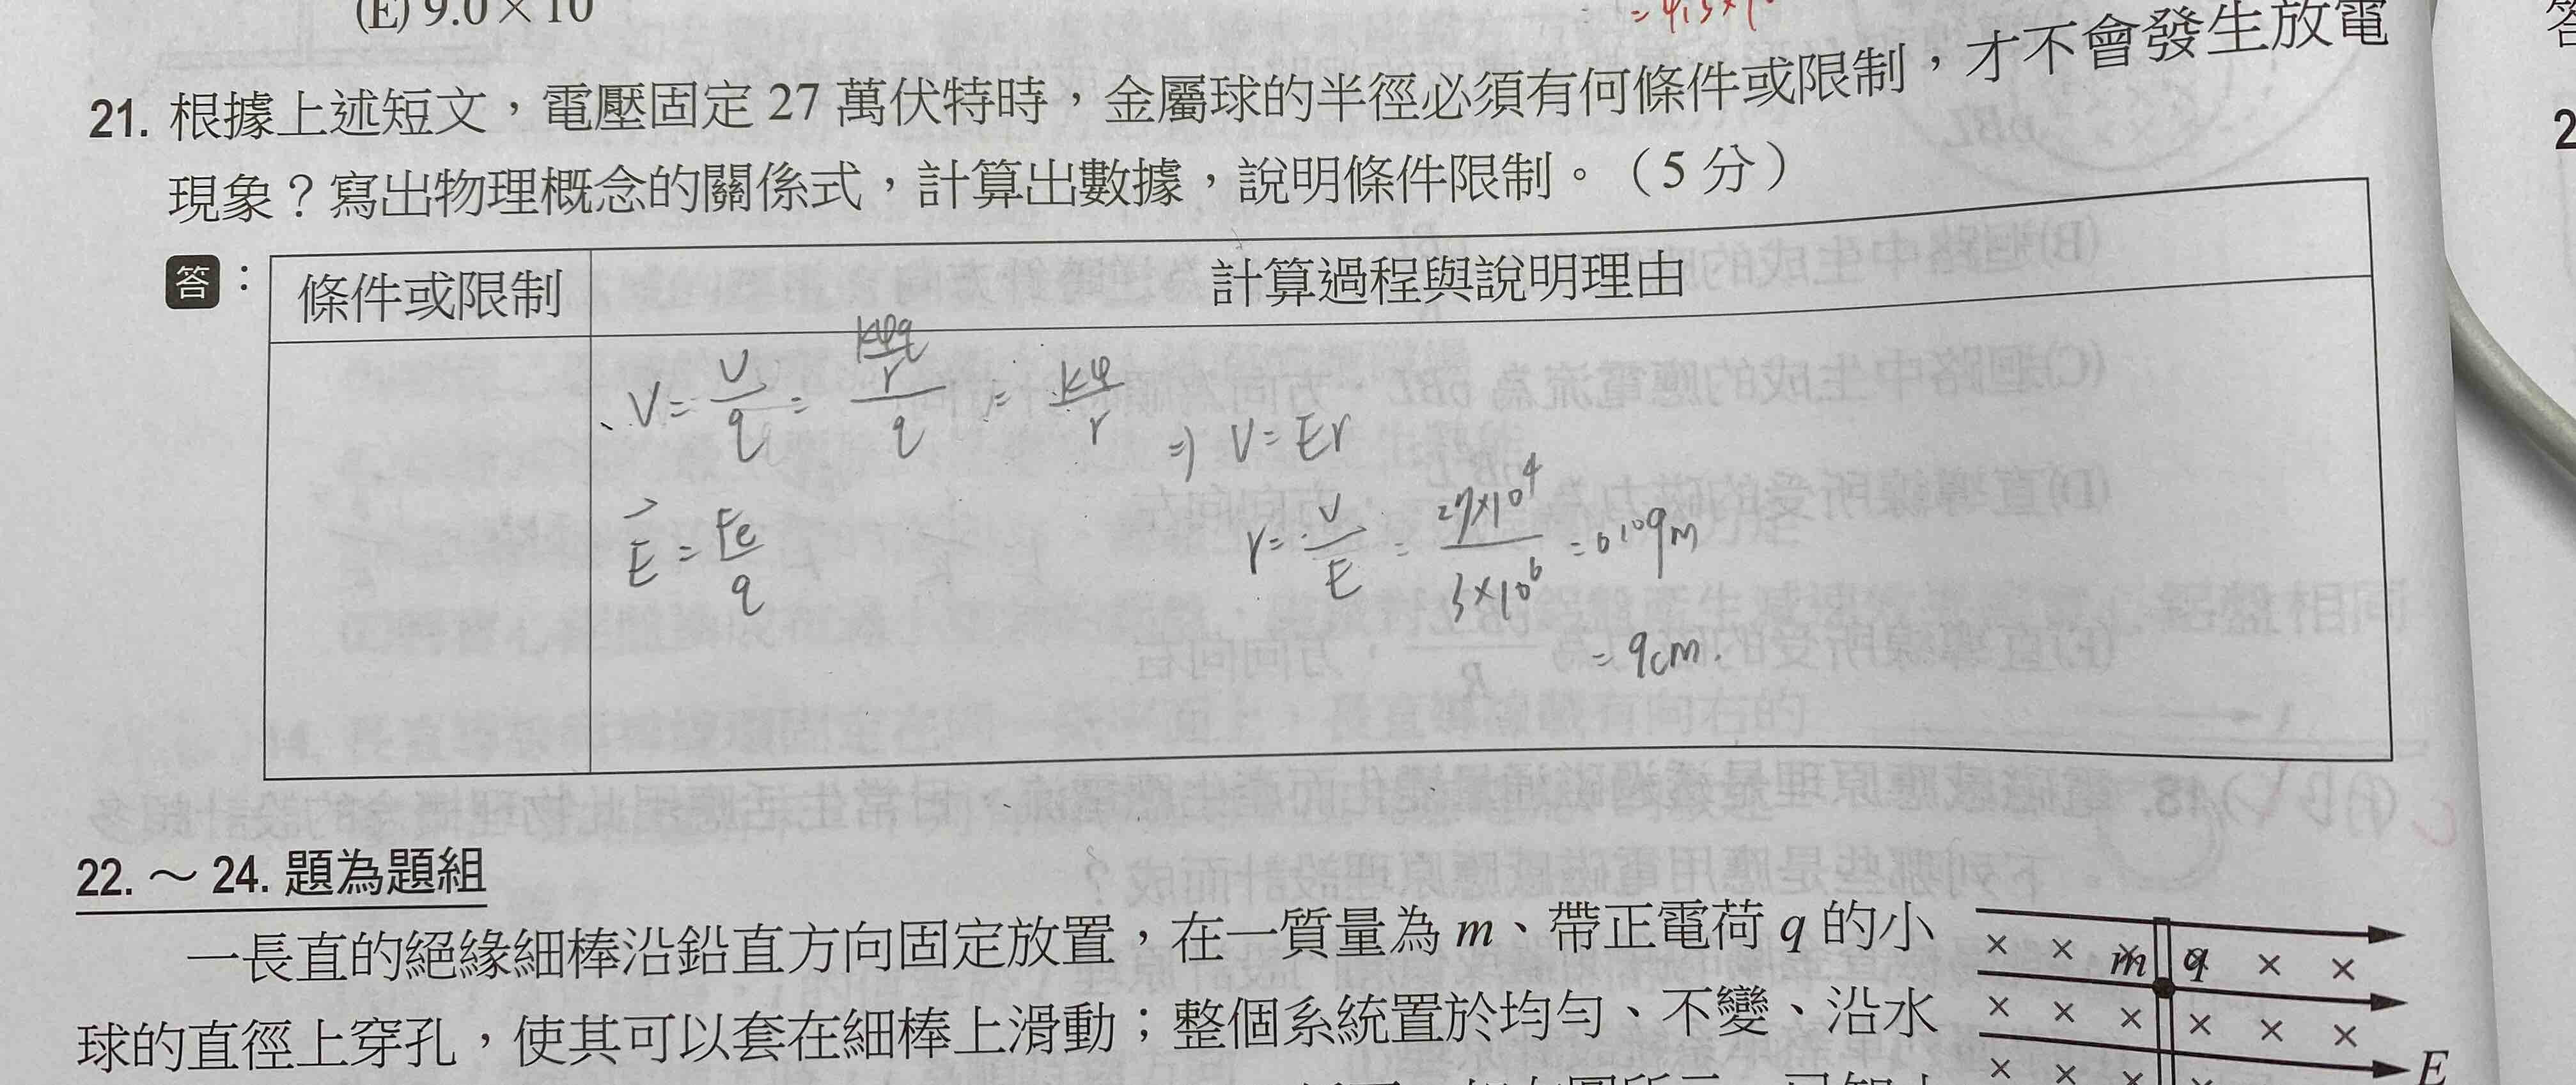 (E) 9.0×10
21. 根據上述短文，電壓固定 27 萬伏特時，金屬球的半徑必須有何條件或限制，才不會發生放電
現象？寫出物理概念的關係式，計算出數據，說明條件限制。（5 分）
答：
條件或限制 計算過程與說明理由
V = U/q = (kφq/r)/q = kφ/r ⇒ V = Er
E⃗ = Fe/q
r = V/E = 27×10⁴/3×10⁶ = 0.09m
= 9cm.
22. ～ 24. 題為題組
一長直的絕緣細棒沿鉛直方向固定放置，在一質量為 m、帶正電荷 q 的小
球的直徑上穿孔，使其可以套在細棒上滑動；整個系統置於均勻、不變、沿水
m q
E